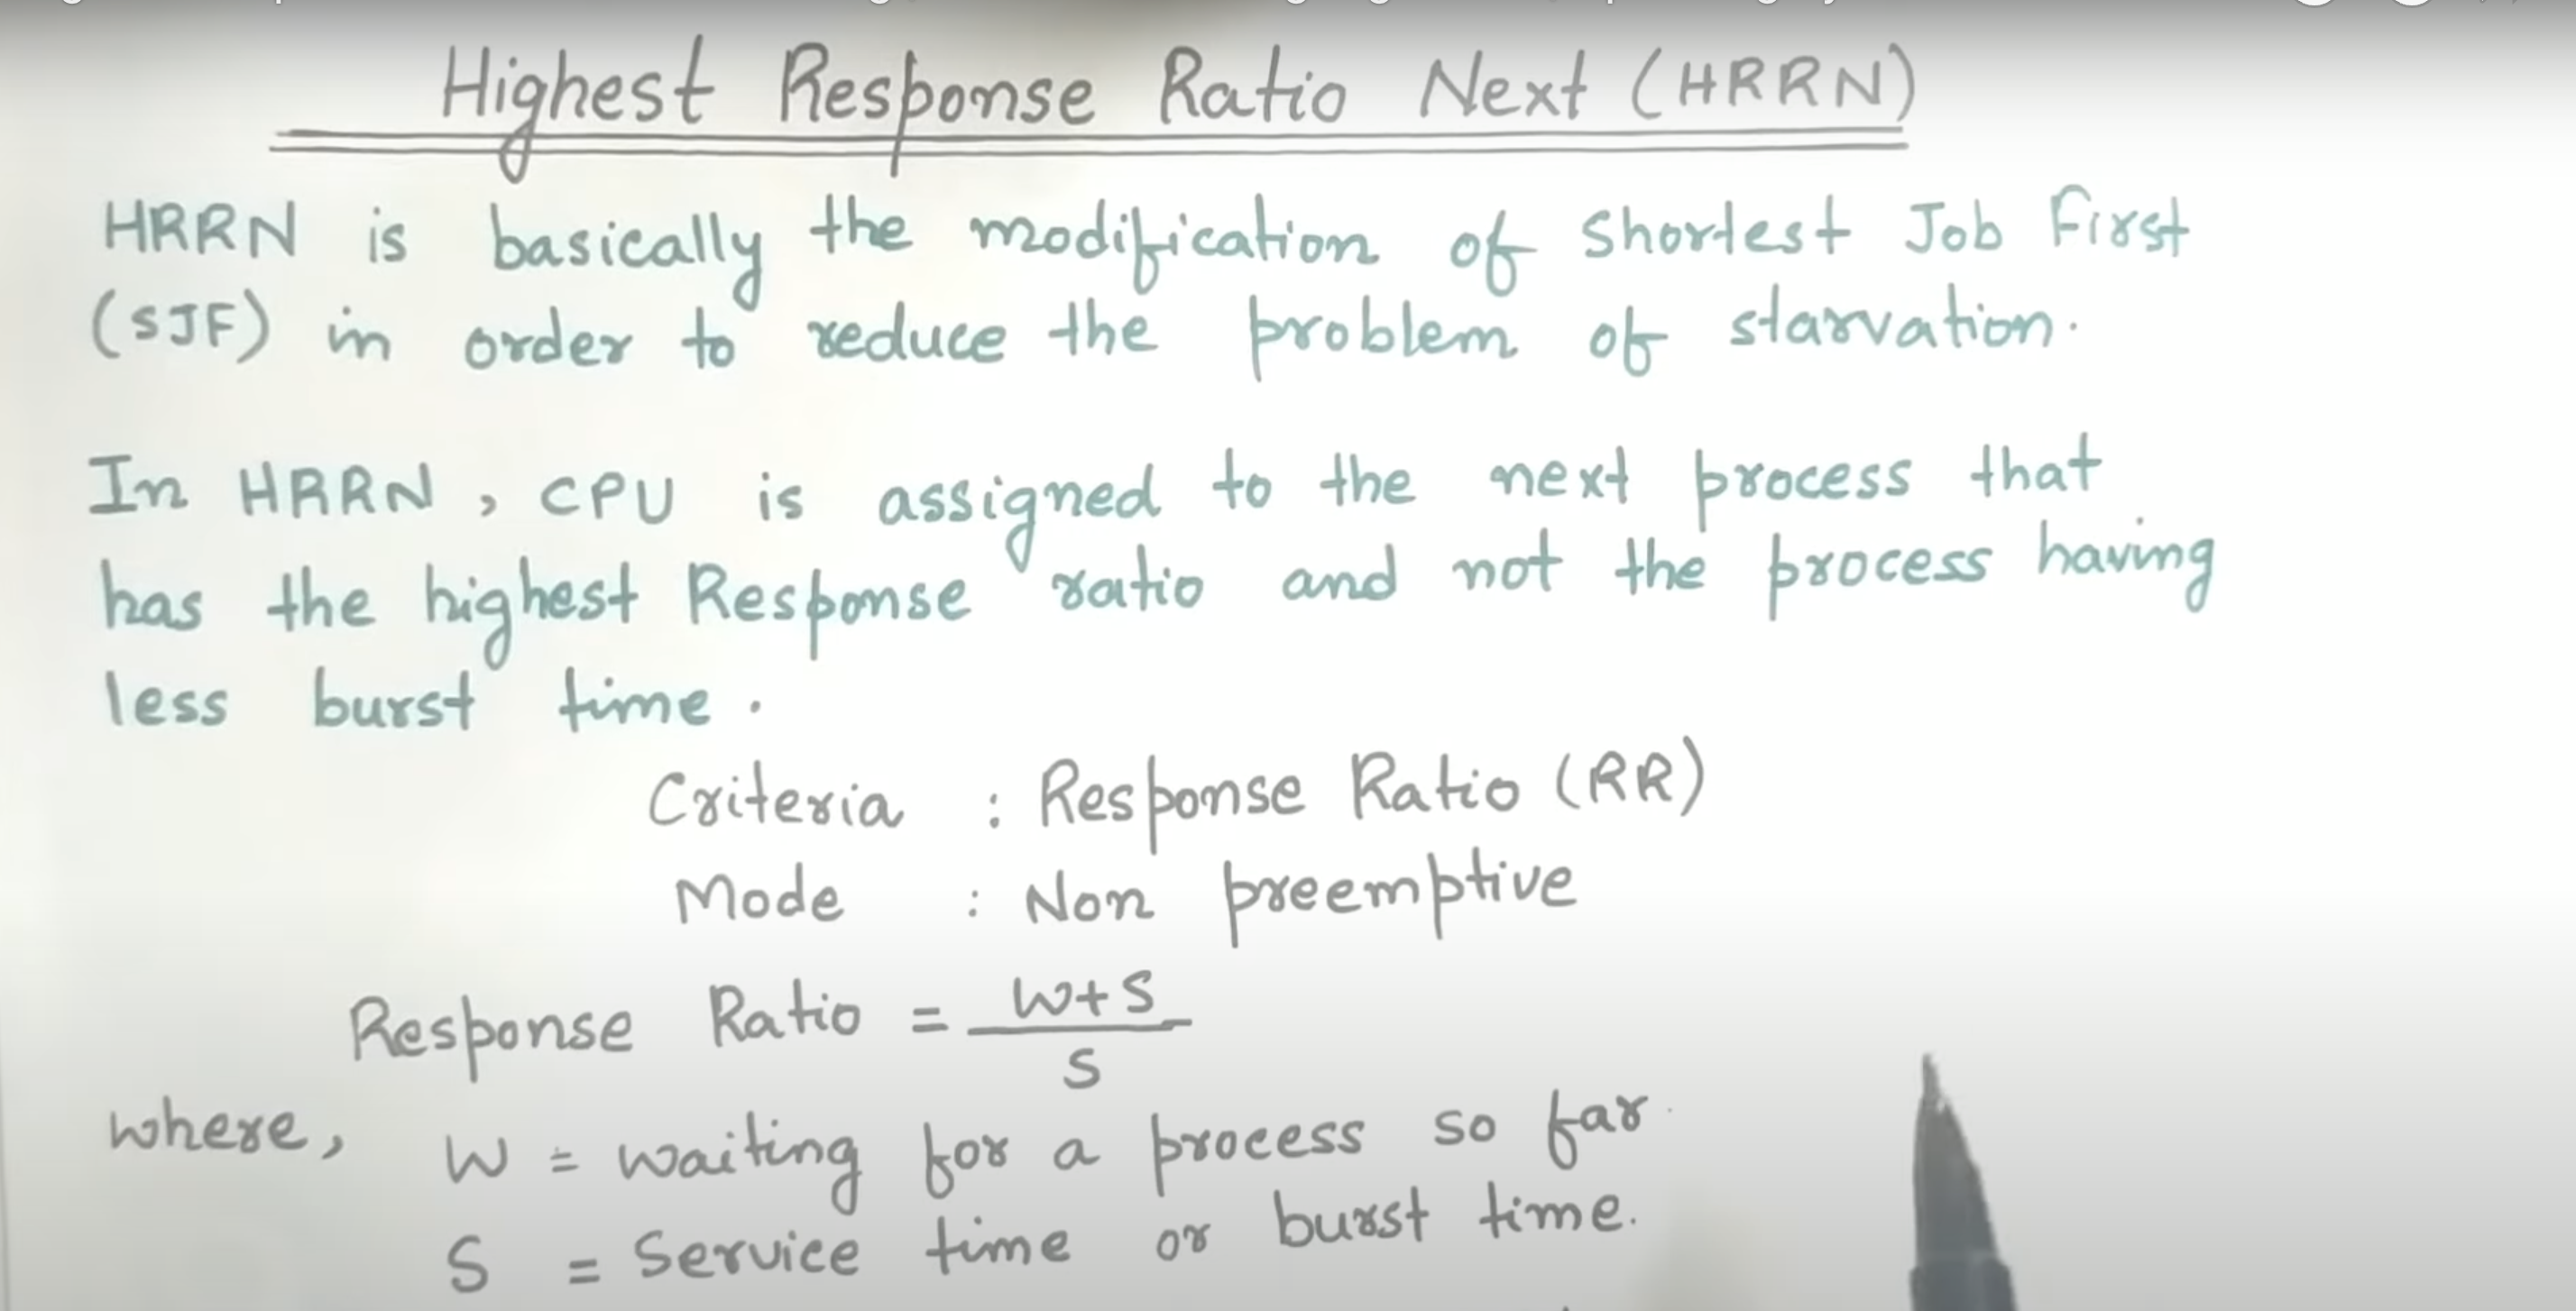 Highest Response Ratio Next (HRRN)
HRRN is basically the modification of Shortest Job First
(SJF) in order to reduce the problem of starvation.
In HRRN, CPU is assigned to the next process that
has the highest Response ratio and not the process having
less burst time.
Criteria : Response Ratio (RR)
Mode : Non preemptive
Response Ratio = W+S
S
where, W = waiting for a process so far
S = Service time or burst time.